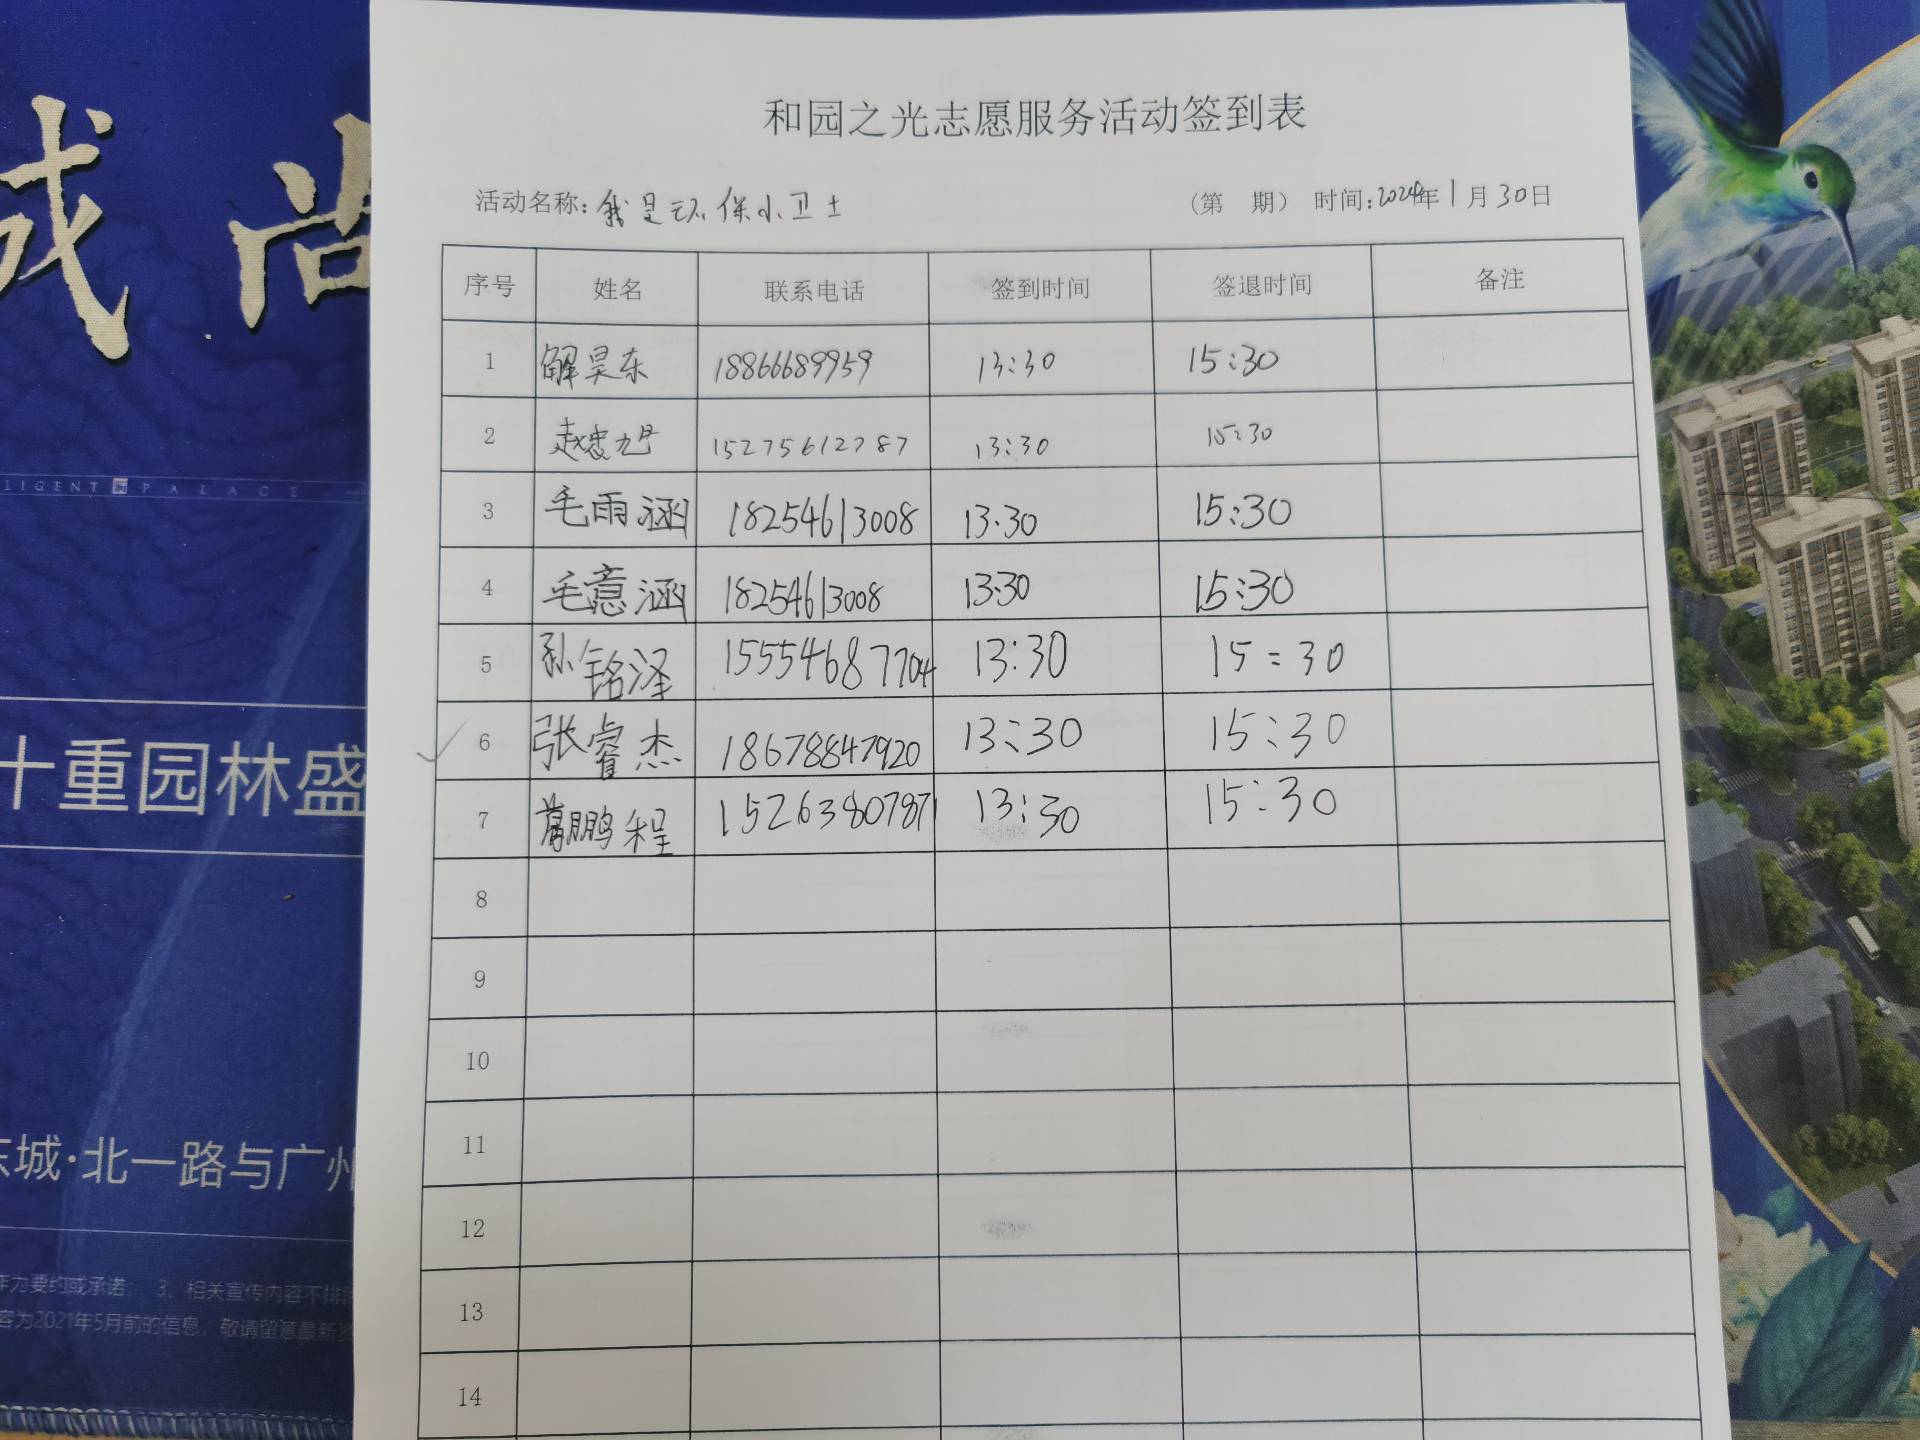 和园之光志愿服务活动签到表
活动名称: 我是环保小卫士 (第 期) 时间: 2024年1月30日
序号 姓名 联系电话 签到时间 签退时间 备注
1 解昊东 18866689959 13:30 15:30
2 赵忠旭 15275612787 13:30 15:30
3 毛雨涵 18254613008 13.30 15:30
4 毛意涵 18254613008 13:30 15:30
5 孙铭泽 15554687704 13:30 15:30
6 张睿杰 18678847920 13:30 15:30
7 鹏程 15263807871 13:30 15:30
8
9
10
11
12
13
14
成 尚
LIGENT PALACE
十重园林盛
东城·北一路与广州
作为要约或承诺; 3、相关宣传内容不排
容为2021年5月前的信息,敬请留意最新资